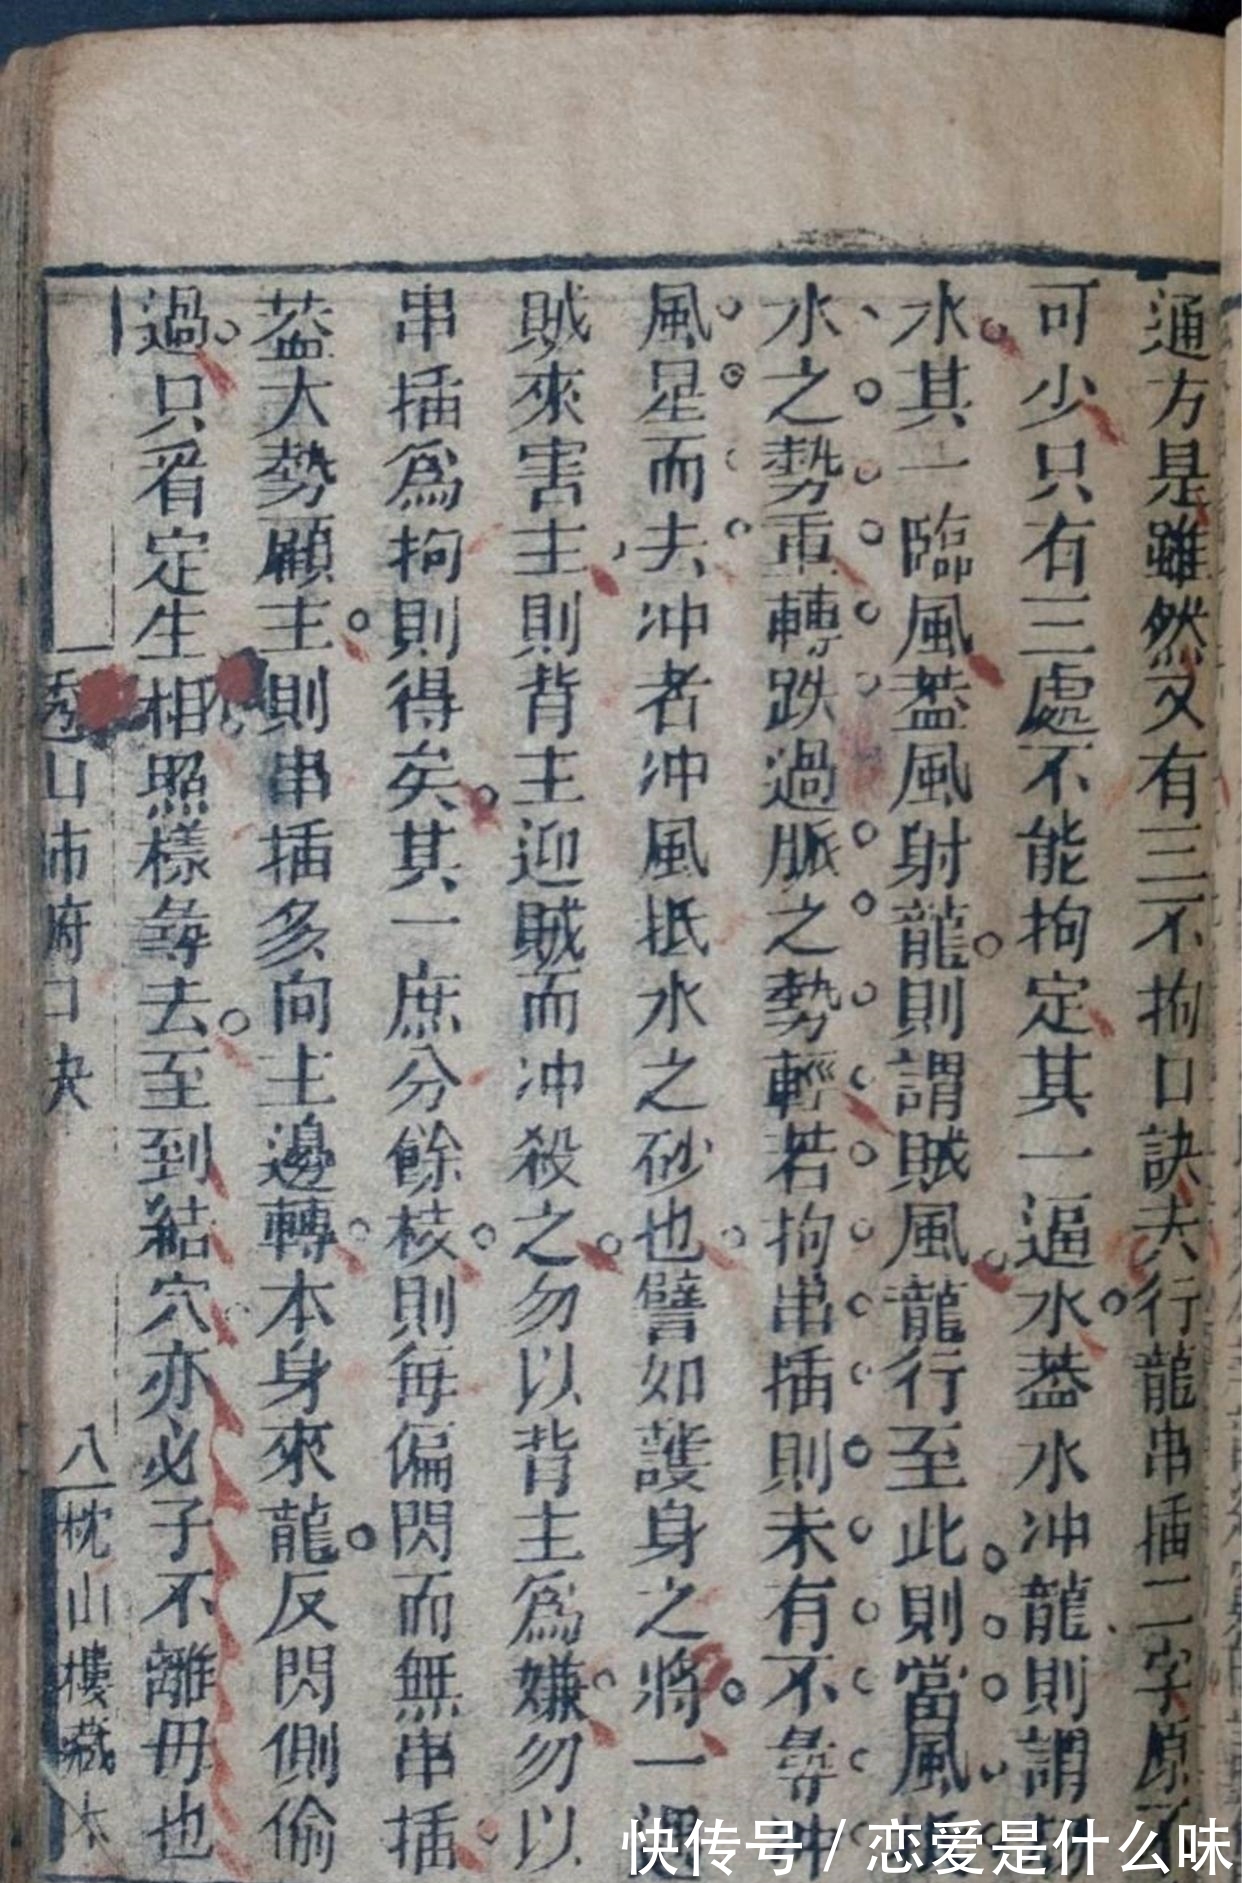 通方是雖然又有三不拘口訣夫行龍串揷二字原
可少只有三處不能拘定其一逼水葢水冲龍則謂
水其一臨風葢風射龍則謂賊風龍行至此則當風
水之勢重轉跌過脈之勢輕若拘串揷則未有不尋冲
風星而去冲者冲風抵水之砂也譬如護身之將一遇
賊來害主則背主迎賊而冲殺之勿以背主爲嫌勿以
串揷爲拘則得矣其一庶分餘枝則每偏閃而無串揷
葢大勢顧主則串揷多向主邊轉本身來龍反閃側偷
過只看定生相照樣尋去至到結穴亦必子不離母也
山沛府口決
八
枕山樓藏本
快传号 / 恋爱是什么味